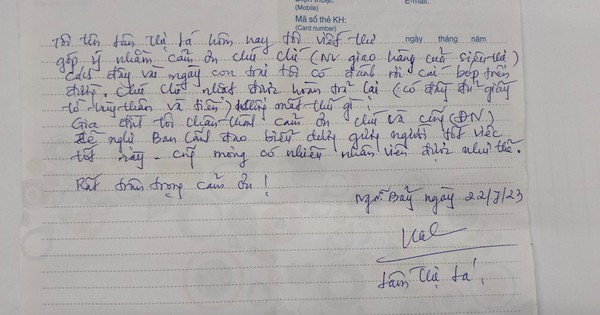 Điện thoại:
(Mobile)
E-mail:
Mã số thẻ KH:
(Card number)
ngày tháng năm
Tôi tên Lâm Thị Lá hôm nay tôi viết thư
góp ý nhằm cảm ơn chú (NV giao hàng của siêu thị)
Cách đây vài ngày con trai tôi có đánh rơi cái bóp trên
đường. Chú nhặt được hoàn trả lại (có đầy đủ giấy
tờ tùy thân và tiền) không mất thứ gì!
Gia đình tôi chân thành cảm ơn chú và công ty (DN)
Đề nghị Ban Lãnh đạo biểu dương người tốt việc
tốt này. mong có nhiều nhân viên được như thế.
Rất trân trọng cảm ơn!
Bảy ngày 22/7/23
Lâm Thị Lá